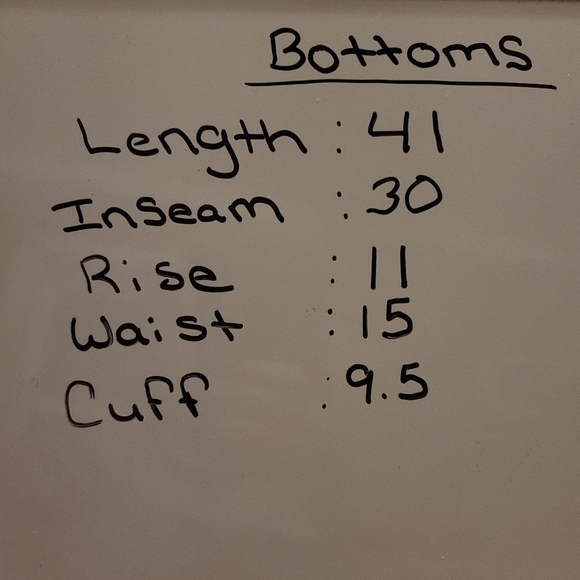 Bottoms
Length : 41
Inseam : 30
Rise : 11
Waist : 15
Cuff : 9.5